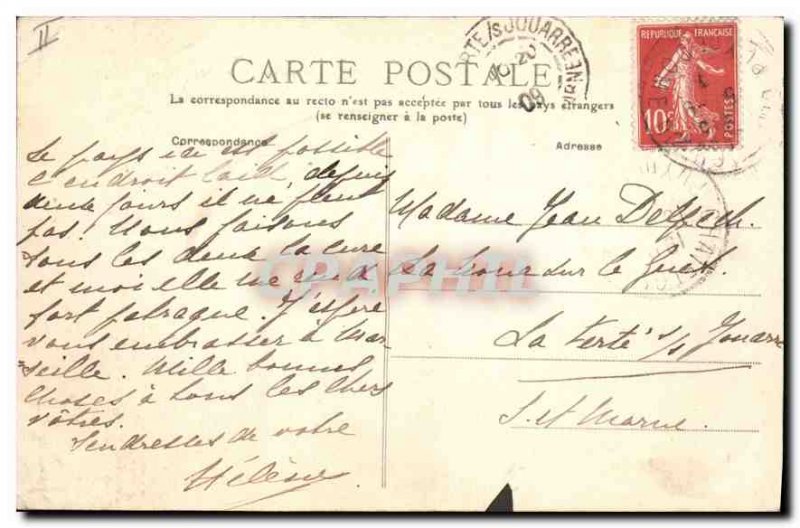 II
CARTE POSTALE
La correspondance au recto n'est pas acceptée par tous les pays étrangers
(se renseigner à la poste)
Correspondance
Adresse
RTE/S JOUARRE
20
09
REPUBLIQUE FRANÇAISE
10c
POSTES
CPAPHIL
Le pays ici est possible
l'endroit laid, depuis
jours il ne pleut
pas. Nous faisons
tous les deux la cure
et moi elle me rend
fort patraque. J'espère
vous embrasser à Mar
seille. Mille bonnes
choses à tous les chers
vôtres.
Tendresses de votre
Hélène
Madame Jean Delpech
la Tour sur le Guet
La Ferté s/s Jouarre
S. et Marne